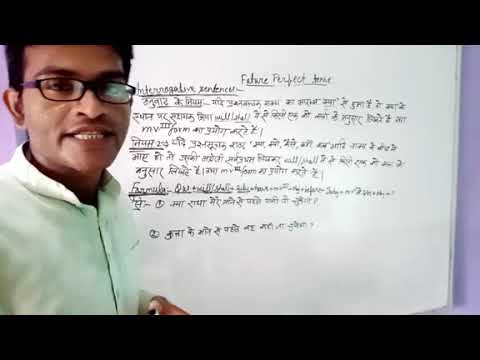 Future Perfect tense
Interrogative sentences:-
अनुवाद के नियम:- यदि प्रश्नवाचक वाक्य का आरम्भ 'क्या' से हुआ है तो क्या के
स्थान पर सहायक क्रिया will/shall में से किसी एक को कर्ता के अनुसार लिखते हैं तथा
mvᴵᴵᴵ form का प्रयोग करते हैं।
नियम 2 यदि प्रश्नसूचक शब्द 'क्या, क्यों, कैसे, कहाँ, कब' आदि वाक्य के बीच में
आए हों तो उनकी अंग्रेजी सर्वप्रथम लिखकर will/shall में से किसी एक को कर्ता के
अनुसार लिखते हैं। तथा mvᴵᴵᴵ form का प्रयोग करते हैं।
Formula:- Q.w + will/shall + sub + have + mvᴵᴵᴵ + obj + before + Sub
① क्या राधा मेरे आने से पहले पानी पी चुकेगी?
② कुत्ता के आने से पहले वह नहीं जा चुकेगा?